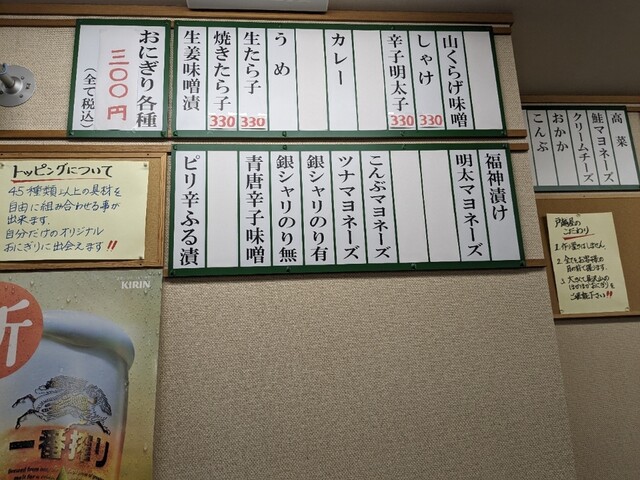 おにぎり各種
三〇〇円
(全て税込)
山くらげ味噌
しゃけ
330
辛子明太子
330
カレー
うめ
生たら子
330
焼きたら子
330
生姜味噌漬
福神漬け
明太マヨネーズ
こんぶマヨネーズ
ツナマヨネーズ
銀シャリのり有
銀シャリのり無
青唐辛子味噌
ピリ辛ふる漬
高菜
鮭マヨネーズ
クリームチーズ
おかか
こんぶ
トッピングについて
45種類以上の具材を
自由に組み合わせる事が
出来ます。
自分だけのオリジナル
おにぎりに出会えます!!
こだわり
1.作り置きはしません。
2.全てお客様の
目の前で握ります。
ご堪能下さい!!
KIRIN
新
一番搾り